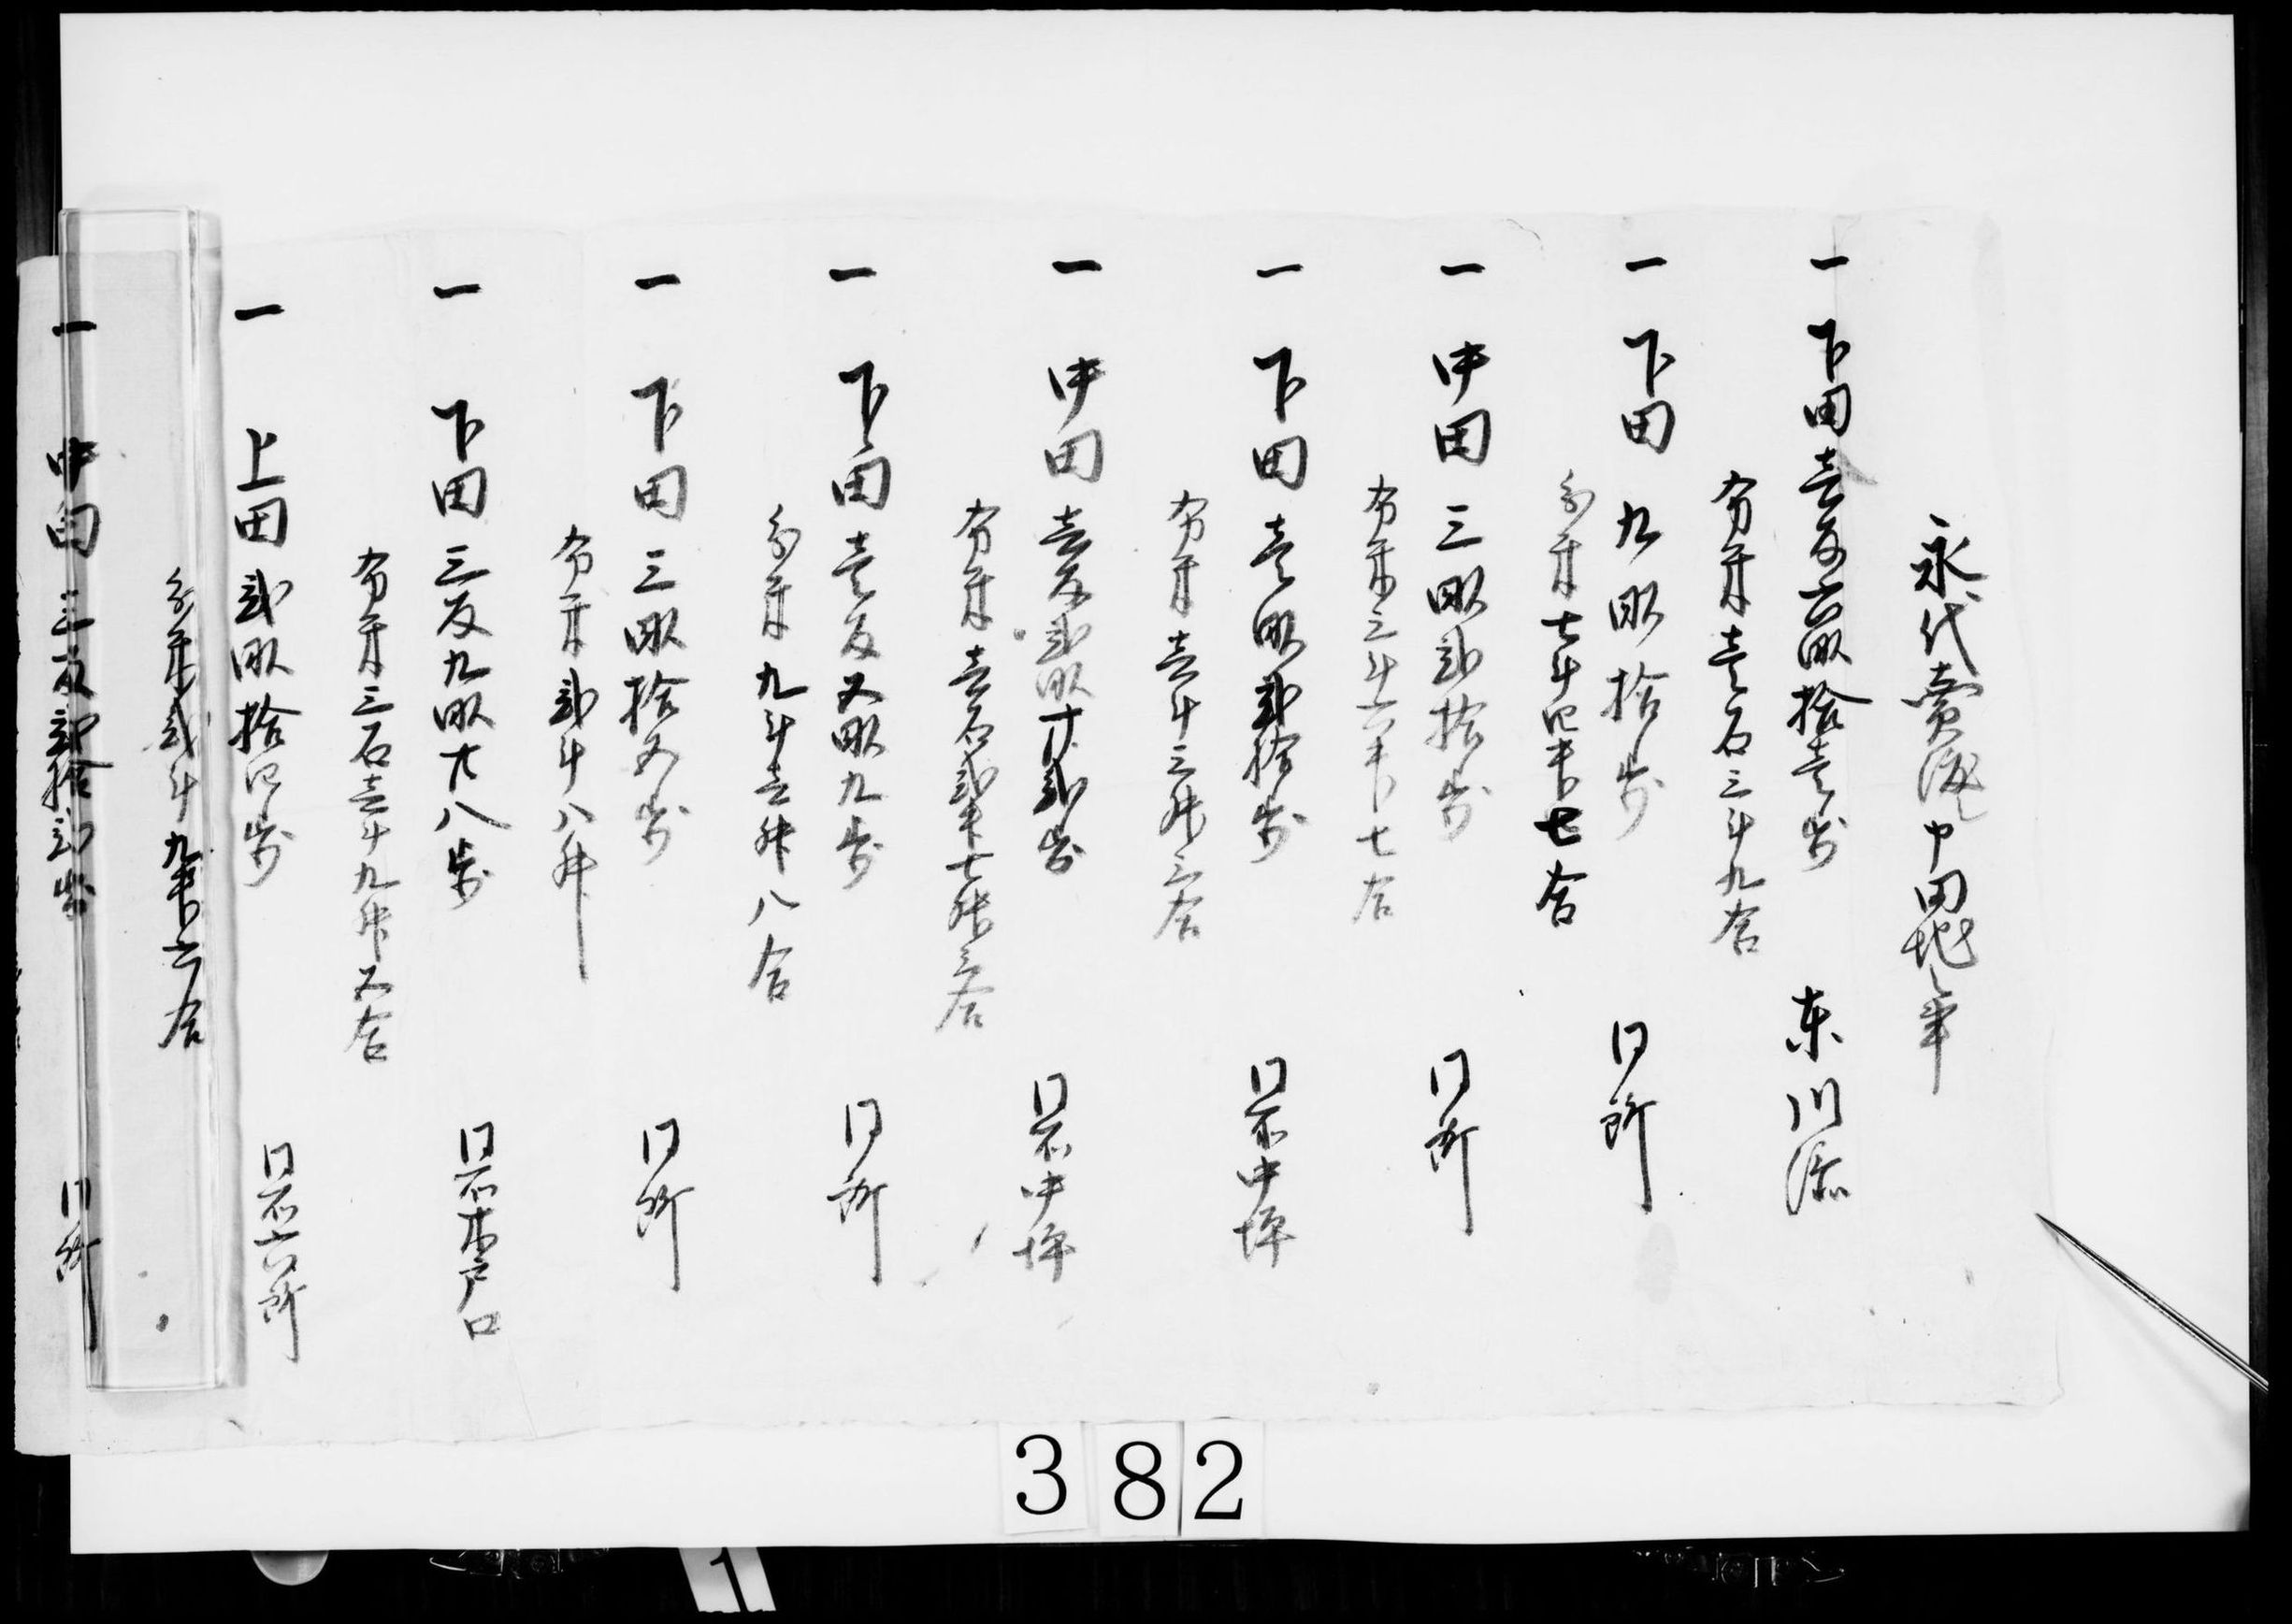 永代賣渡シ申田地之事
一下田壹反六畝拾壹歩　東川添
分米壹石三斗九合
一下田九畝拾歩　同所
分米七斗四升七合
一中田三畝弐拾歩　同所
分米三斗六升七合
一下田壹畝弐拾歩　同所中坪
分米壹斗三升三合
一中田壹反弐畝廿弐歩　同所中坪
分米壹石弐斗七升三合
一下田壹反五畝九歩　同所
分米九斗壹升八合
一下田三畝拾五歩　同所
分米弐斗八升
一下田三反九畝廿八歩　同所木戸口
分米三石壹斗九升五合
一上田弐畝拾四歩　同所六所
分米弐斗九升六合
一中田三反弐拾弐歩　同所
382
1